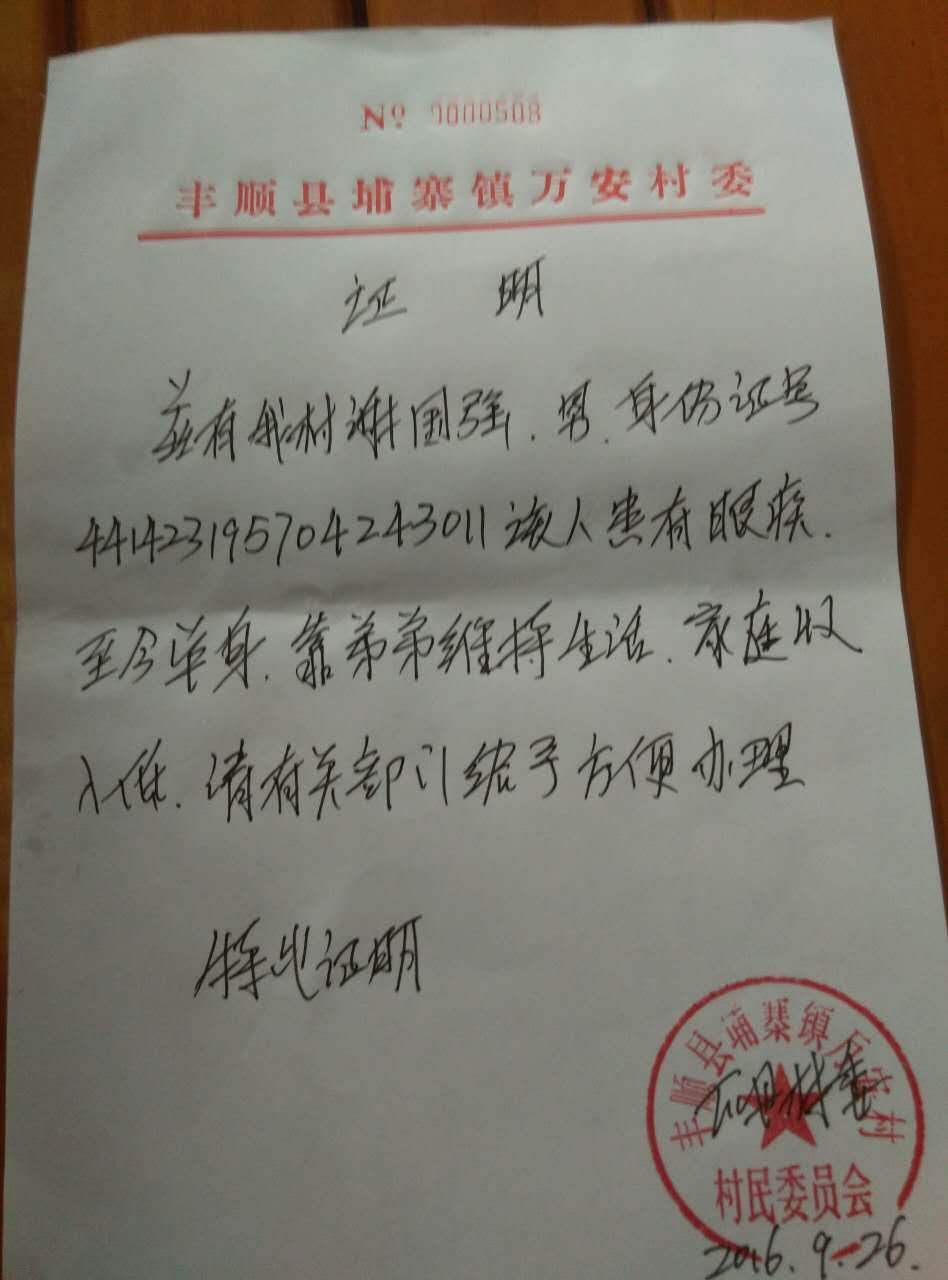 No 0000508
丰顺县埔寨镇万安村委
证 明
兹有我村谢国强、男、身份证号
441423195704243011该人患有眼疾、
至今单身、靠弟弟维持生活、家庭收
入低、请有关部门给予方便办理
特此证明
丰顺县埔寨镇万安村
万安村委
村民委员会
2016.9.26.